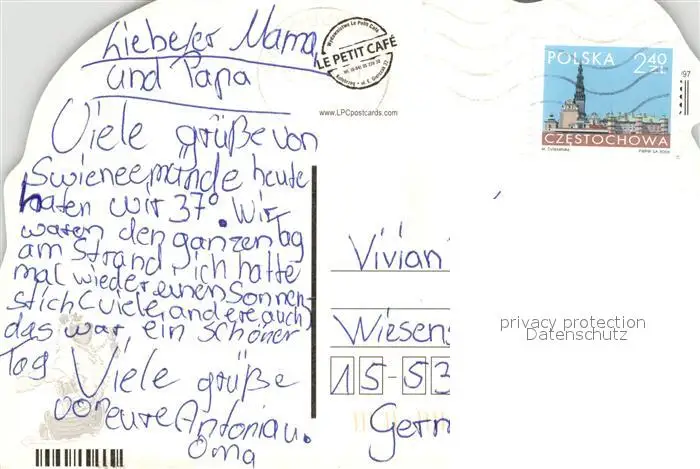 Liebe/er Mama
und Papa
Viele grüße von
Swieneemünde heute
haten wir 37°. Wir
waren den ganzen tag
am Strand, ich hatte
mal wieder einen Sonnen-
stich (viele andere auch)
das war, ein schöner
Tag Viele grüße
von eure Antonia u.
Oma
Wydawnictwo Le Petit Café
LE PETIT CAFÉ
www.LPCpostcards.com
POLSKA 240
ZŁ
CZĘSTOCHOWA
Vivian
Wiesens
15-53
Germ
privacy protection
Datenschutz